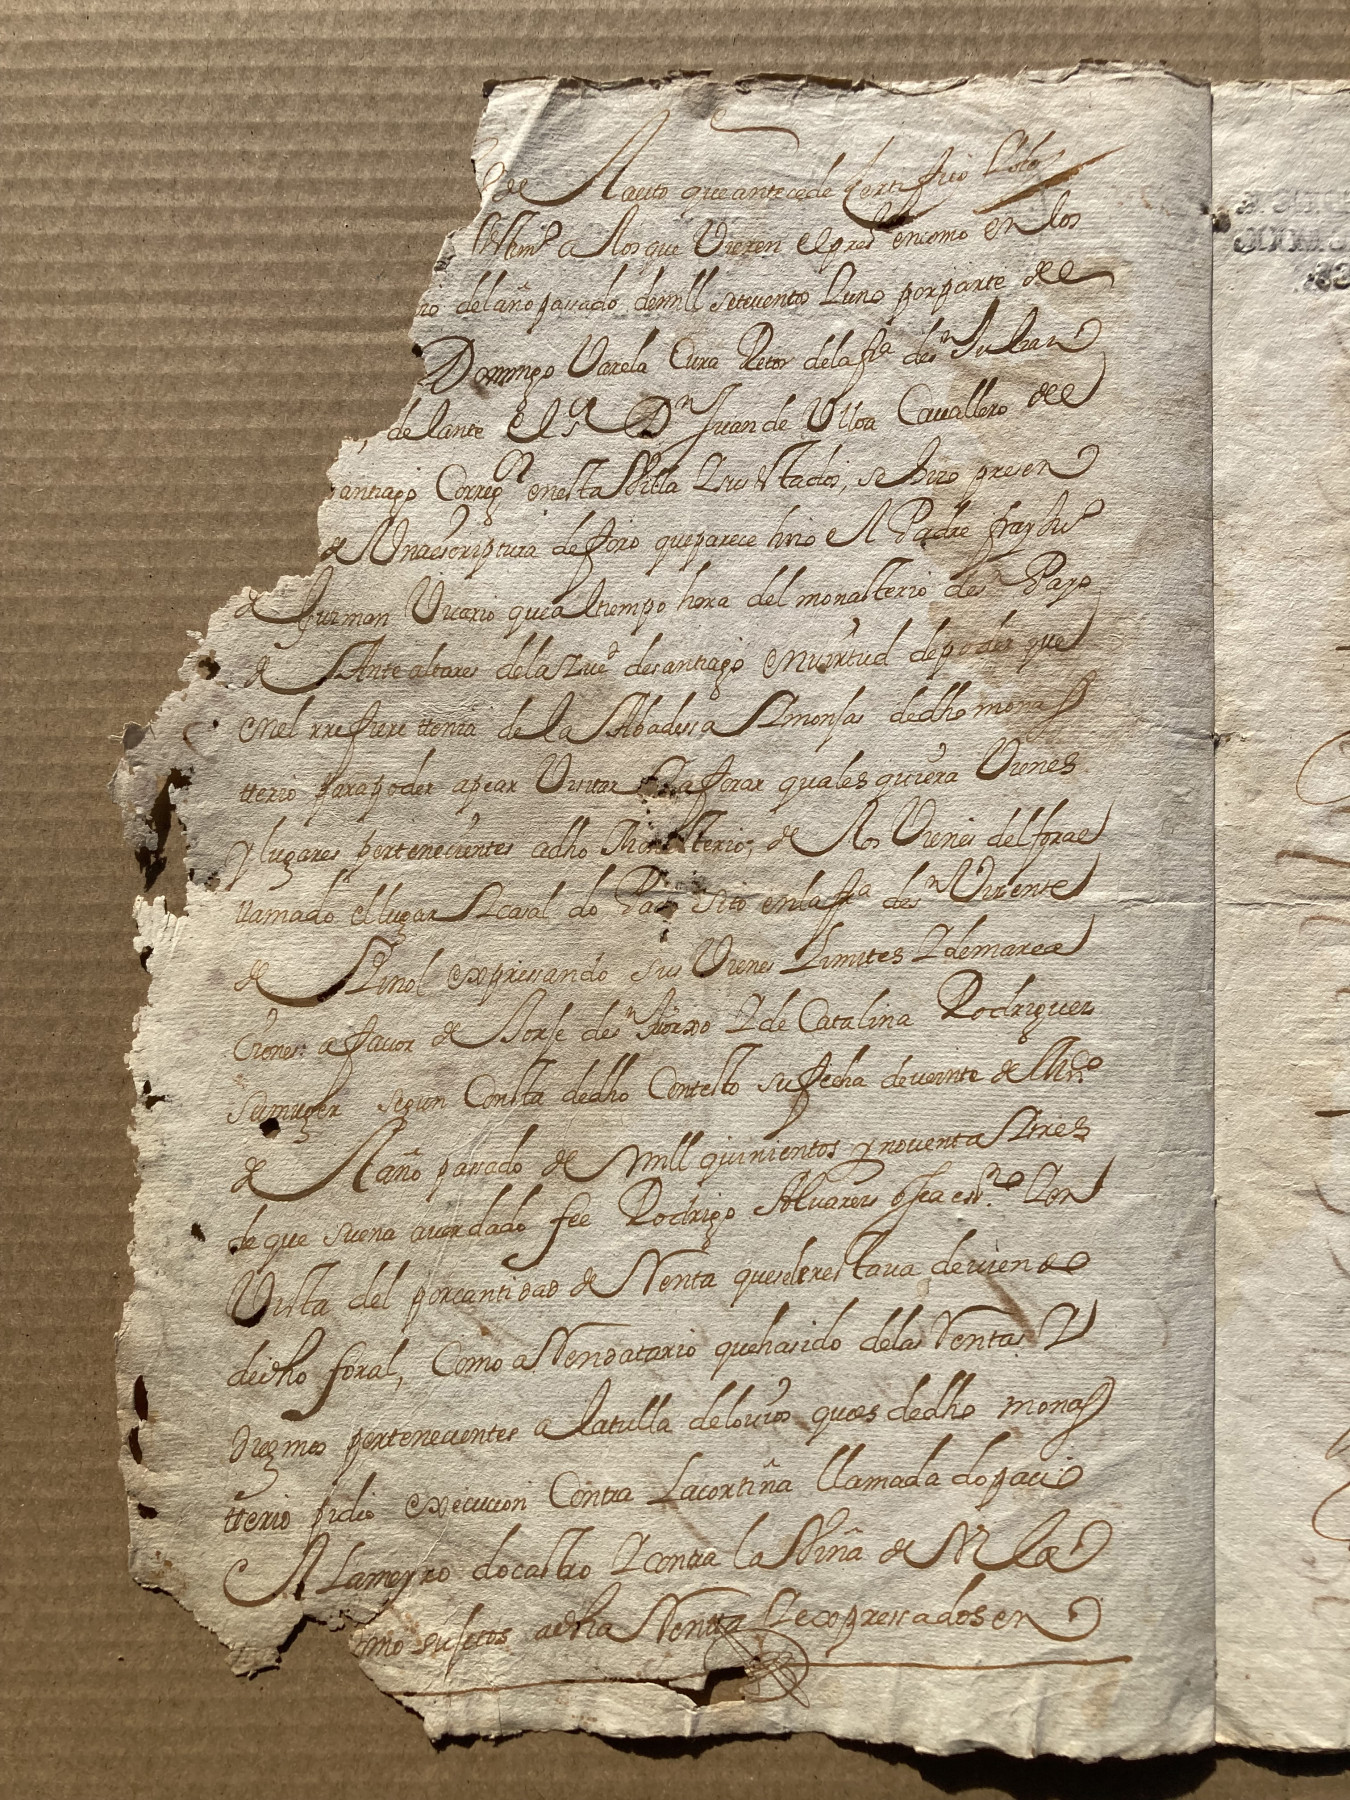 de el auto que antecede Certifico
a los que Vieren el press.te en como en los
rio del año passado de mill setecientos y uno por parte de el
Domingo Varela Cura Retor de la fra de sn Julian
delante el Sr Dn Juan de Ulloa Cavallero de el
antiago Correg.or en esta Villa y sus estados, se hizo presen
de Una escriptura de foro que parece hiço el Padre fray
de Guzman Vicario que al tiempo hera del monasterio de sn Payo
de Ante altares de la de santiago en virtud de poder que
en el rrefiere ttenia de la Abadessa y monjas de dho monas
tterio para poder apear Visitar y aforar quales quiera Vienes
y lugares pertenecientes a dho Monasterio, de los Vienes del foral
llamado el lugar y casal do Pacio sito en la fra de sn Vicente
de Pinol expressando sus Vienes Limites y demarca
ciones: a favor de Jorje de sn Jorxo y de Catalina Rodriguez
su muger segun Consta de dho Contesto su fecha de veinte de
del año passado de mill quinientos y noventa y tres
de que suena aver dado fee Rodrigo Alvarez ssno y con
Vista del por cantidad de Renta que se le restava deviendo
de dho foral, Como a Rendatario que ha sido de las Rentas y
diezmos pertenecientes a la tulla de que es de dho monas
tterio pidio execucion Contra La cortiña llamada do pacio
el Lameyro do castro y contra la Viña de
mo sujetos a dha Renta y expressados en